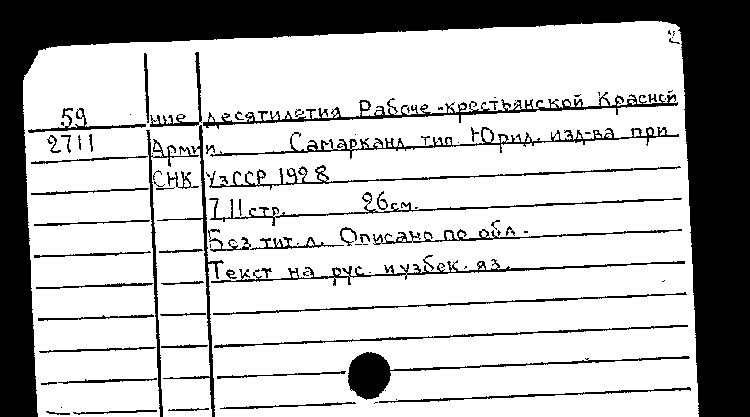 2
59 ние десятилетия Рабоче-крестьянской Красной
2711 Армии. Самарканд, тип. Юрид. изд-ва при
СНК УзССР, 1928
7,11 стр. 26 см.
Без тит. л. Описано по обл.
Текст на рус. и узбек. яз.